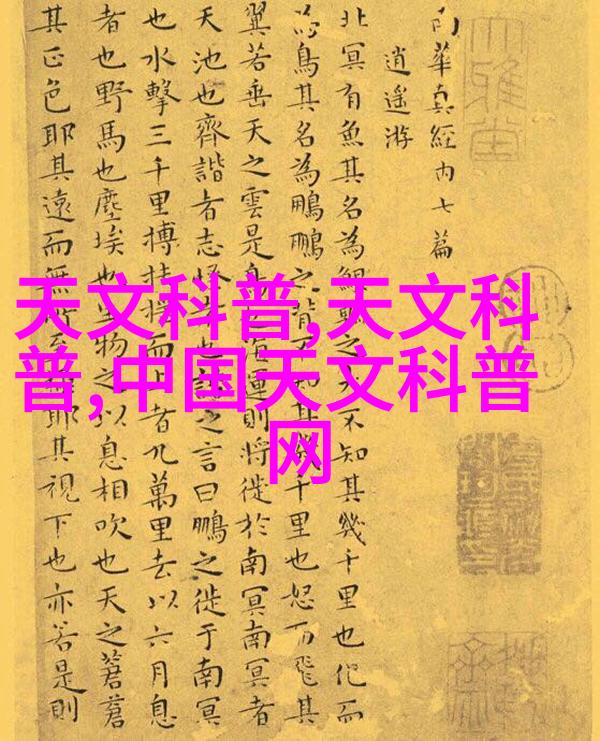 天文科普,天文科
普,中国天文科普
网
南華真經內七篇
逍遥游
北冥有魚其名為鯤鯤之大不知其幾千里也化而
為鳥其名為鵬鵬之背不知其幾千里也怒而飛其
翼若垂天之雲是鳥也海運則將徙於南冥南冥者
天池也齊諧者志怪者也諧之言曰鵬之徙于南冥
也水擊三千里搏扶摇而上者九萬里去以六月息
者也野馬也塵埃也生物之以息相吹也天之蒼蒼
其正色耶其遠而無所至極耶其視下也亦若是則
大雅堂